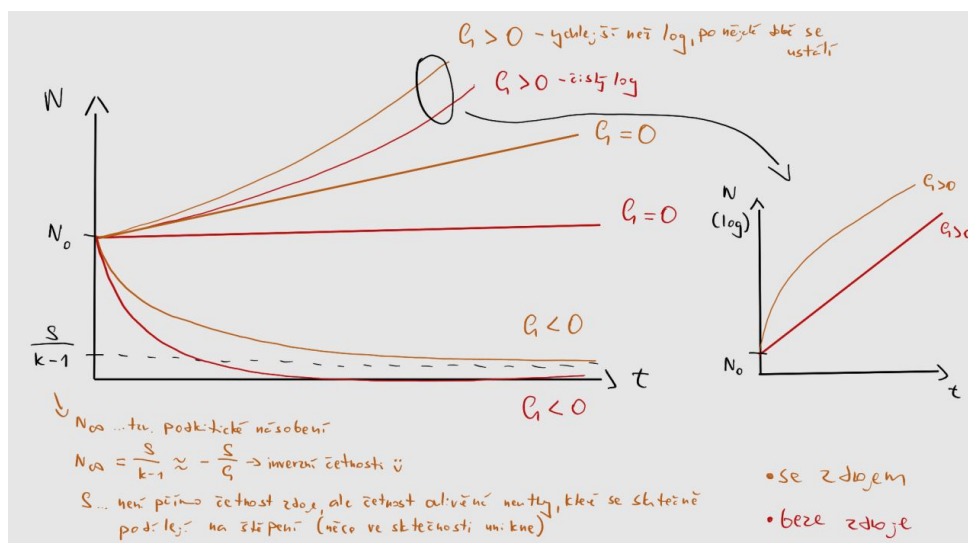 ρ > 0 - rychlejší než log, po nějaké době se
ustálí
ρ > 0 - čistý log
N
ρ = 0
N
(log)
ρ > 0
N₀
ρ = 0
ρ > 0
ρ < 0
S/k-1
N₀
t
t
ρ < 0
N∞ ... tzv. podkritické násobení
N∞ = S/k-1 ≈ - S/ρ → inverzní četnosti ü
S ... není přímo četnost zdroje, ale četnost, které se skutečně
podílejí na štěpení (něco ve skutečnosti unikne)
• se zdrojem
• beze zdroje